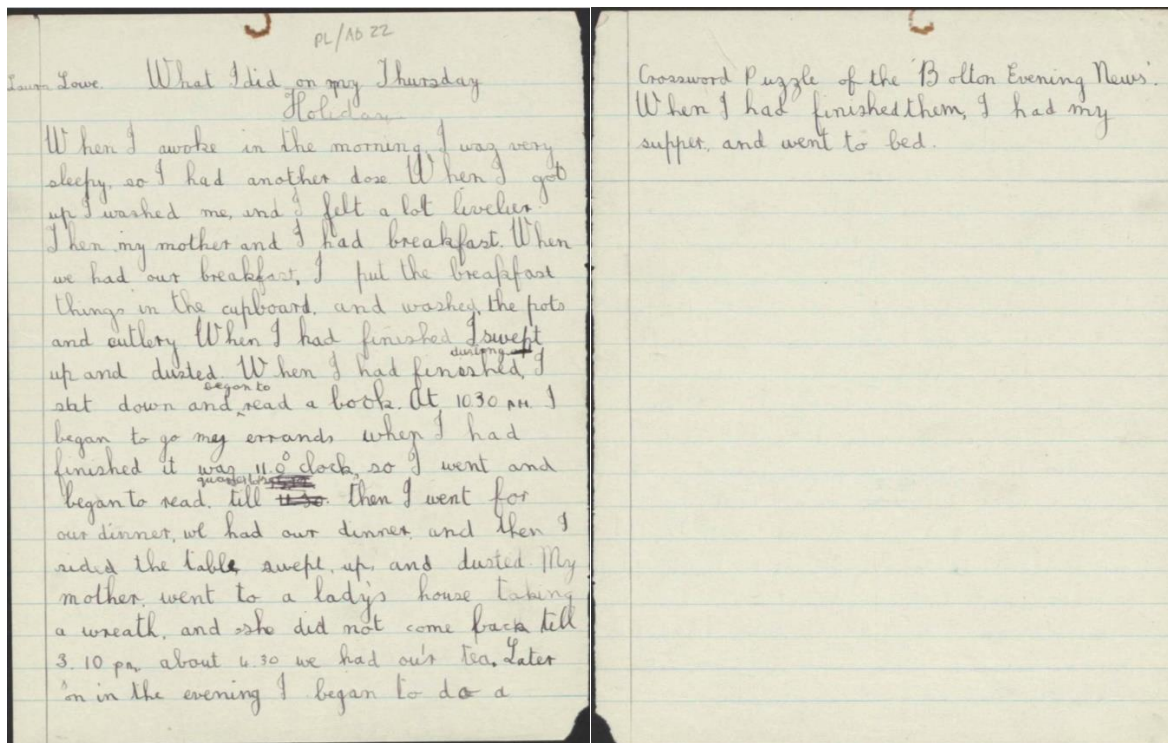 PL/AD 22
Laura Lowe. What I did on my Thursday
Holiday
When I awoke in the morning, I was very
sleepy, so I had another doze When I got
up I washed me, and I felt a lot livelier.
Then my mother and I had breakfast. When
we had our breakfast, I put the breakfast
things in the cupboard, and washed, the pots
and cutlery When I had finished I swept
up and dusted. When I had finished dusting, I
sat down and began to read a book. At 10 30 AM I
began to go my errands when I had
finished it was 11.0 o'clock, so I went and
began to read, till then I went for
our dinner, we had our dinner, and then I
sided the table, swept, up, and dusted. My
mother, went to a lady's house taking
a wreath, and she did not come back till
3. 10 pm about 4.30 we had our tea. Later
on in the evening I began to do a
Crossword Puzzle of the 'Bolton Evening News'.
When I had finished them, I had my
supper, and went to bed.